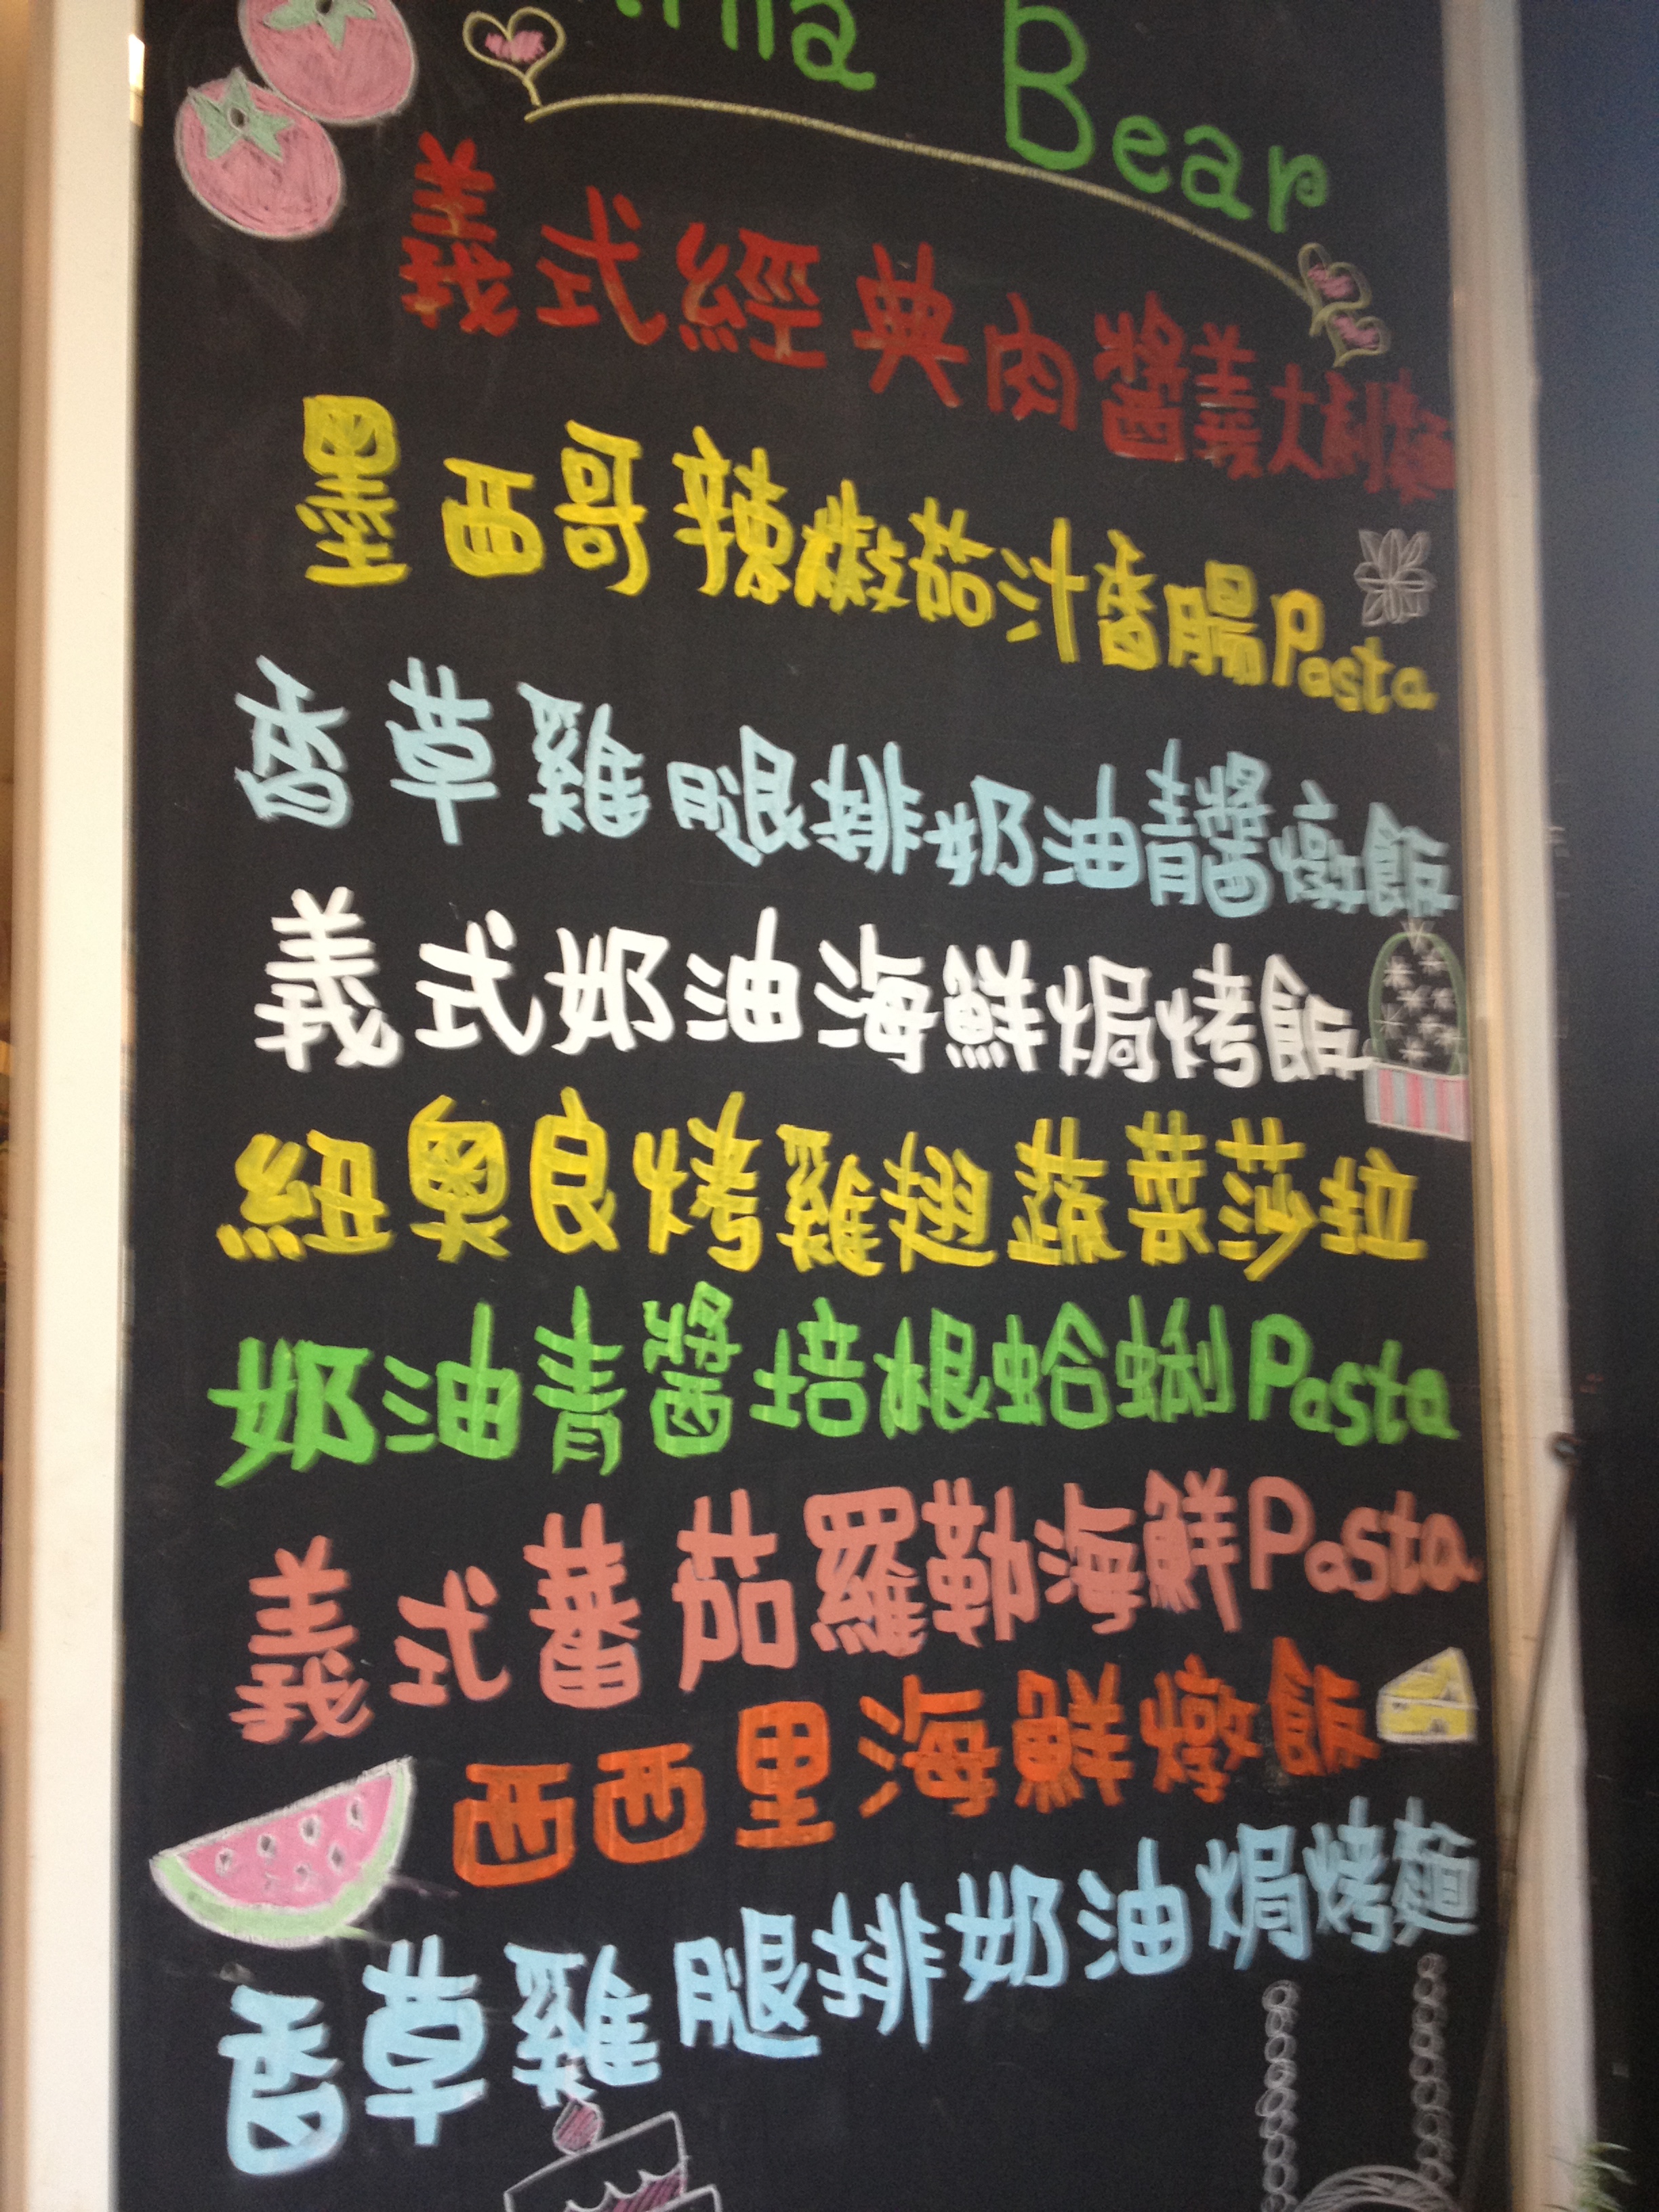 Bear
義式經典肉醬義大利麵
墨西哥辣椒茄汁香腸Pasta
香草雞腿排奶油青醬燉飯
義式奶油海鮮焗烤飯
紐奧良烤雞翅蔬菜莎拉
奶油青醬培根蛤蜊Pasta
義式蕃茄羅勒海鮮Pasta
西西里海鮮燉飯
香草雞腿排奶油焗烤麵